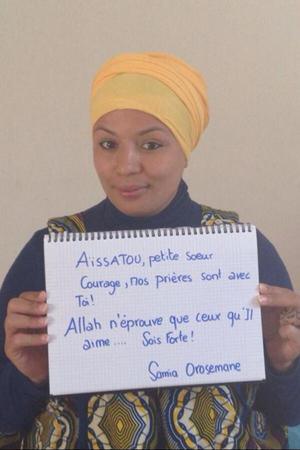 AïSSATOU, petite soeur
Courage, nos prières sont avec
Toi!
Allah n'éprouve que ceux qu'Il
aime.... Sois Forte!
Samia Orosemane